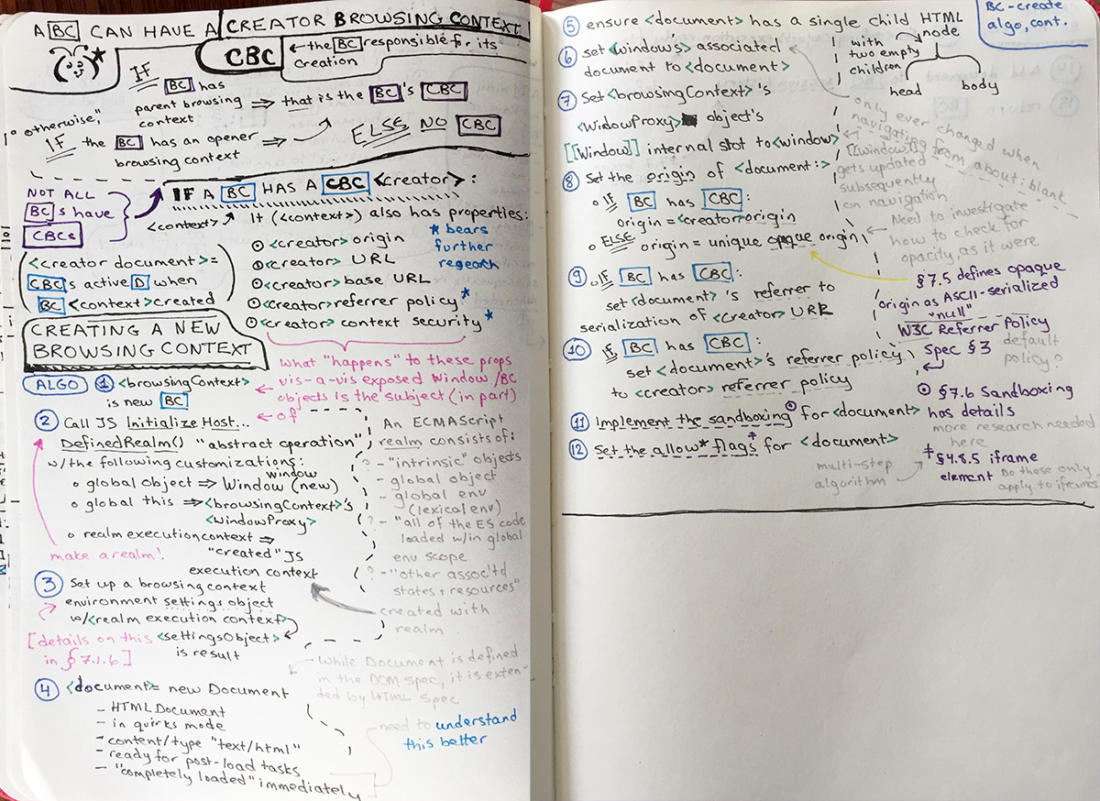 A BC CAN HAVE A CREATOR BROWSING CONTEXT
CBC ← the BC responsible for its
creation
IF
BC has
parent browsing
context
⇒ that is the BC's CBC
"otherwise,"
IF the BC has an opener
browsing context
⇒ ELSE NO CBC
NOT ALL
BCs have
CBCs
IF A BC HAS A CBC <creator>:
<context> It (<context>) also has properties:
<creator> origin
<creator> URL
<creator> base URL
<creator> referrer policy*
<creator> context security*
* bears
further
<creator document> =
CBC's active D when
BC <context> created
CREATING A NEW
BROWSING CONTEXT
What "happens" to these props
vis-a-vis exposed Window/BC
objects is the subject (in part)
of
ALGO
1 <browsingContext>
is new BC
2 Call JS Initialize Host...
DefinedRealm() "abstract operation",
w/the following customizations:
global object ⇒ Window (new)
window
global this ⇒ <browsingContext>'s
<WindowProxy>
realm execution context ⇒
"created" JS
execution context
make a realm!
3 Set up a browsing context
environment settings object
w/<realm execution context>
<settingsObject>
is result
[details on this
in § 7.1.6]
4 <document> = new Document
- HTML Document
- in quirks mode
- content/type "text/html"
- ready for post-load tasks
- "completely loaded" immediately
An ECMAScript
realm consists of:
? - "intrinsic" objects
- global object
- global env
(lexical env)
? - "all of the ES code
loaded w/in global
env scope
? - "other assoc'td
states + resources"
created with
realm
While Document is defined
in the DOM spec, it is exten-
ded by HTML spec
need to understand
this better
BC-create
algo, cont.
5 ensure <document> has a single child HTML
node
with
two empty
children
head body
6 set <window's> associated
document to <document>
7 Set <browsingContext>'s
<WindowProxy> object's
[[Window]] internal slot to <window>
only ever changed when
navigating from about:blank
[[window]]
gets updated
subsequently
on navigation
8 Set the origin of <document:>
IF BC has CBC:
origin = <creator> origin
ELSE origin = unique opaque origin
Need to investigate
how to check for
opacity, as it were
§ 7.5 defines opaque
origin as ASCII-serialized
"null"
9 IF BC has CBC:
set <document>'s referrer to
serialization of <creator> URL
10 IF BC has CBC:
set <document>'s referrer policy
to <creator> referrer policy
W3C Referrer Policy
Spec § 3
default
policy?
11 Implement the sandboxing for <document>
§ 7.6 Sandboxing
has details
more research needed
here
12 Set the allow* flags‡ for <document>
multi-step
algorithm
‡ § 4.8.5 iframe
element
Do these only
apply to iframes?